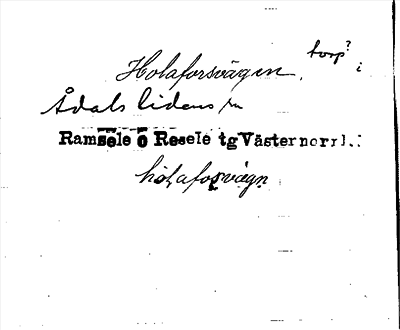 Holaforsvägen, torp? i
Ådals lidens sn
Ramsele o Resele tg Västernorrl.:
hòlaforsvägn